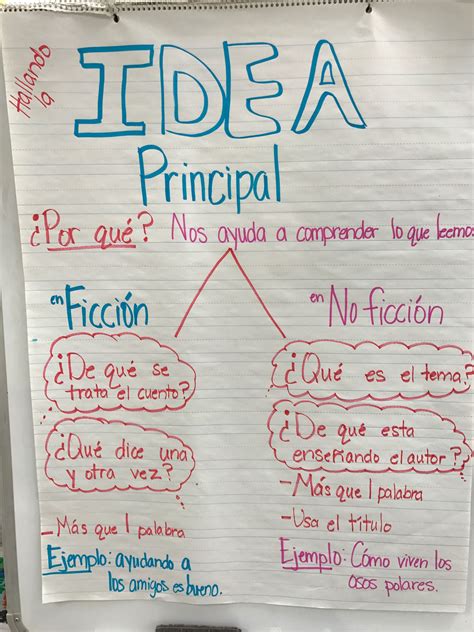 Hallando
la
IDEA
Principal
¿Por qué? Nos ayuda a comprender lo que leemos
en Ficción
¿De qué se
trata el cuento?
¿Qué dice una
y otra vez?
- Más que 1 palabra
Ejemplo: ayudando a
los amigos es bueno.
en No ficción
¿Qué es el tema?
¿De qué esta
enseñando el autor?
- Más que 1 palabra
- Usa el título
Ejemplo: Cómo viven los
osos polares.